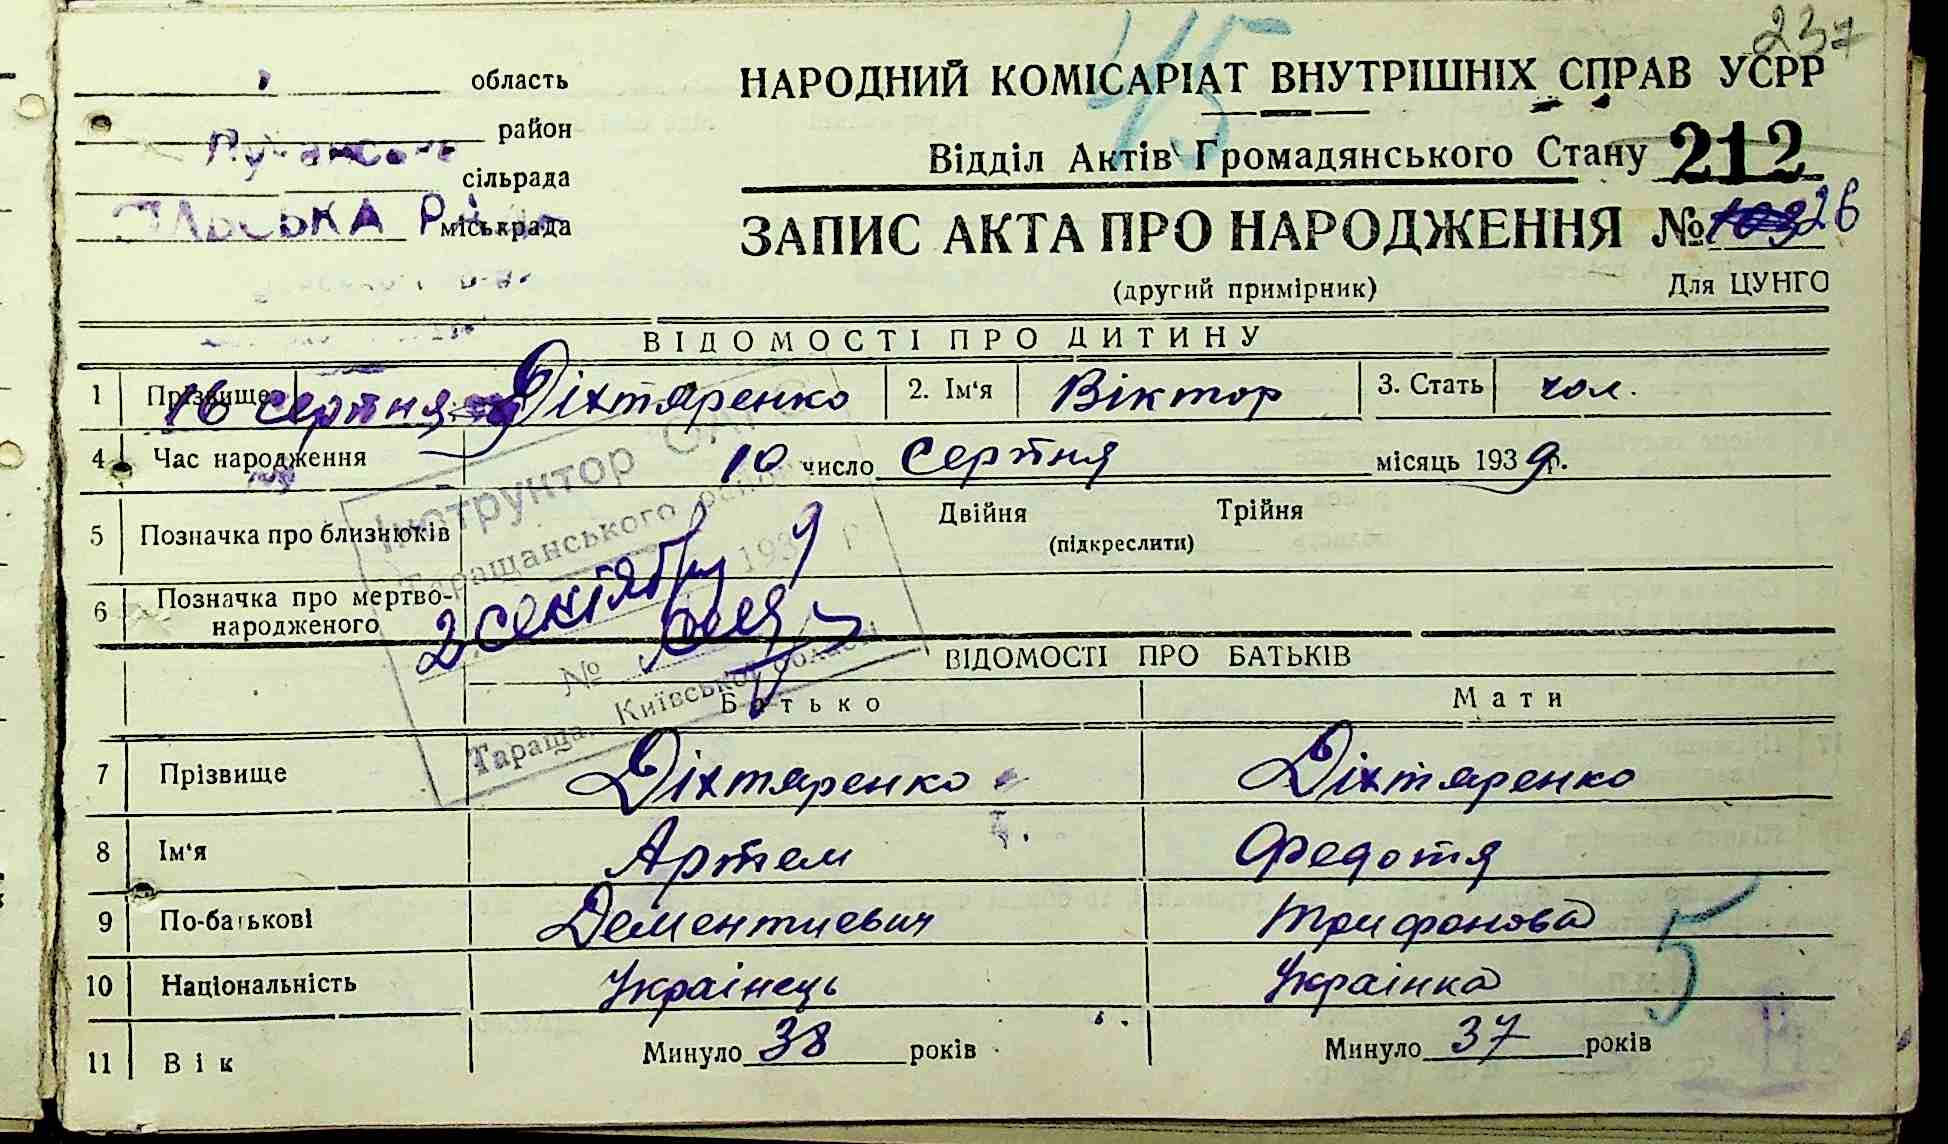 237
45
область
район
сільрада
СІЛЬСЬКА РАДА
міськрада
НАРОДНИЙ КОМІСАРІАТ ВНУТРІШНІХ СПРАВ УСРР
Відділ Актів Громадянського Стану 212
ЗАПИС АКТА ПРО НАРОДЖЕННЯ № 26
(другий примірник) Для ЦУНГО
ВІДОМОСТІ ПРО ДИТИНУ
1 Прізвище Діхтяренко 2. Ім'я Віктор 3. Стать чол.
16 серпня
4 Час народження 10 число серпня місяць 1939 р.
5 Позначка про близнюків Двійня Трійня
(підкреслити)
6 Позначка про мертво-
народженого
Інструктор ОАГС
Таращанського району
2 сентября 1939 р.
№
Тараща, Київської області
ВІДОМОСТІ ПРО БАТЬКІВ
Батько Мати
7 Прізвище Діхтяренко Діхтяренко
8 Ім'я Артем Федотя
9 По-батькові Дементиевич Трифонова
10 Національність Украінець Украінка
5
11 Вік Минуло 38 років Минуло 37 років